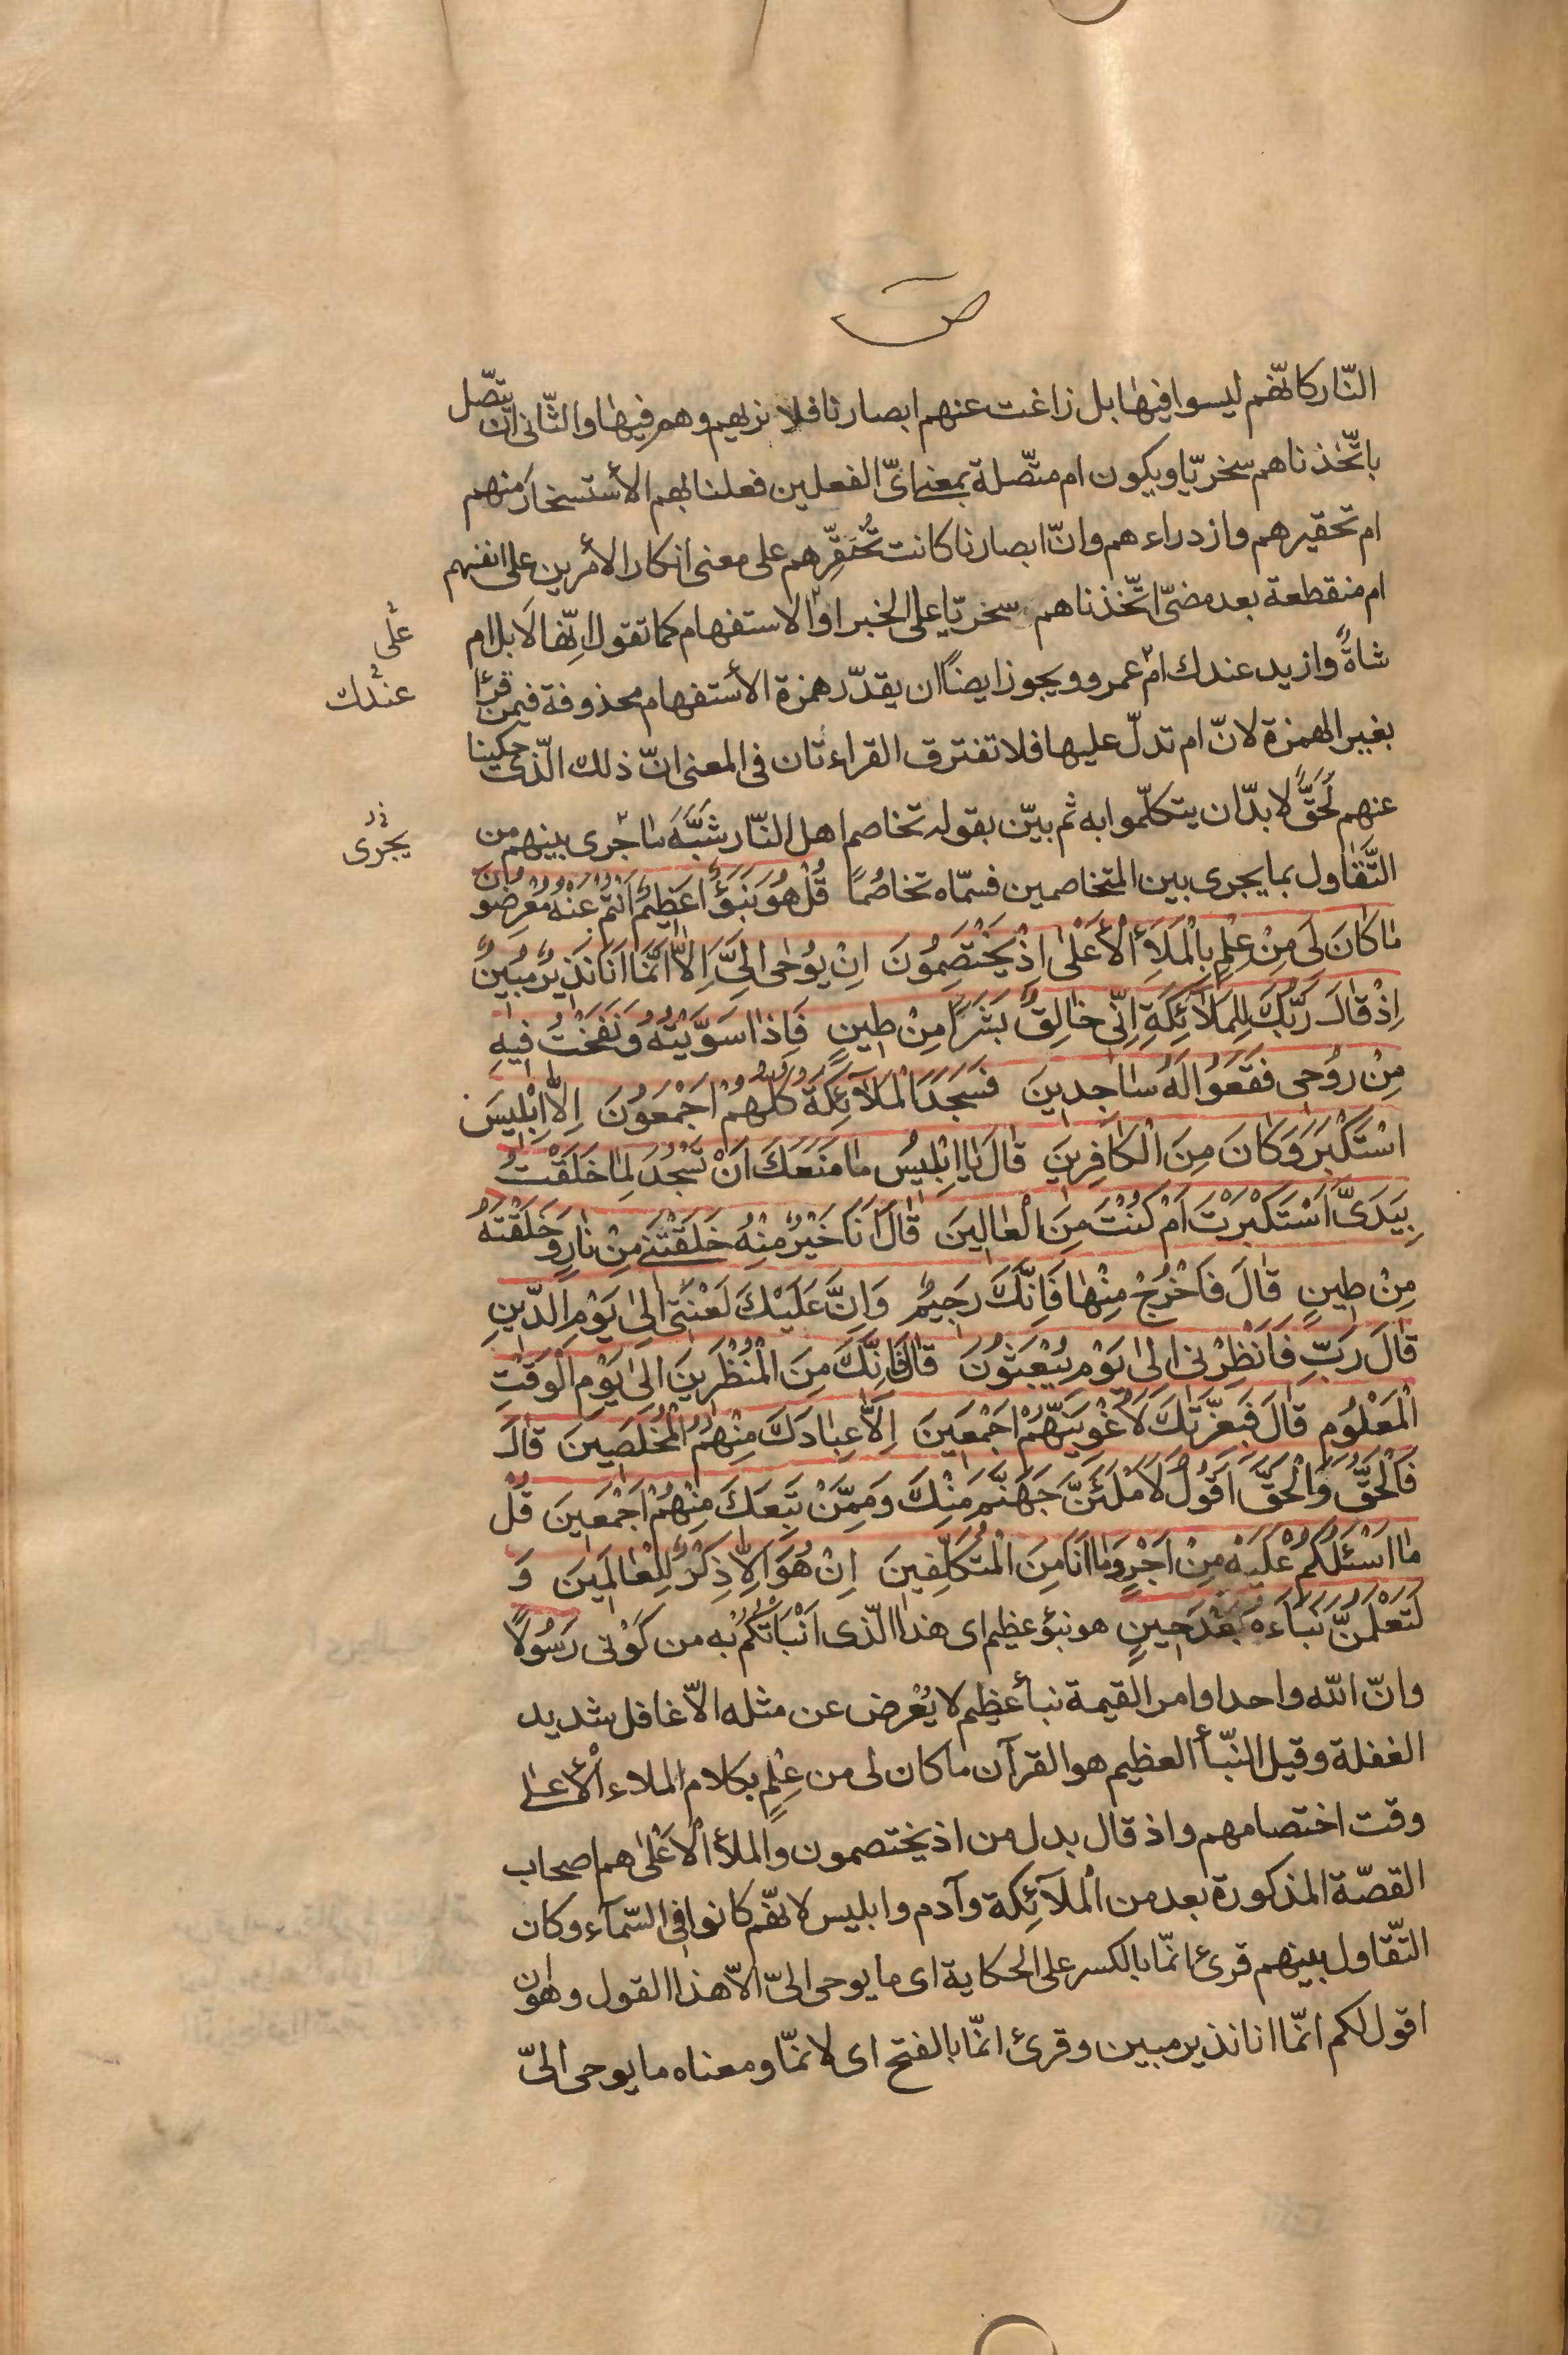 ص
النّار كانّهم ليسوا فيها بل زاغت عنهم ابصارنا فلا نريهم وهم فيها والثّانى ان يتّصل
باتّخذناهم سخريّا ويكون ام متّصلة بمعنى اىّ الفعلين فعلنا بهم الأستسخار منهم
ام تحقيرهم وازدراءهم وانّ ابصارنا كانت تُحَقِّرهم على معنى انكار الأمرين على انفسهم
ام منقطعة بعد مضىّ اتّخذناهم سخريّا على الخبر او الاستفهام كما تقول انّها لَابل ام
على
شاةً وازيد عندك ام عمرو ويجوز ايضاً ان يقدّر همزة الأستفهام محذوفة فيمن قرأ
عندك
بغير الهمزة لانّ ام تدلّ عليها فلا تفترق القراءتان فى المعنى انّ ذلك الّذى حكينا
عنهم لَحَقٌّ لا بدّ ان يتكلّموا به ثم بيّن بقوله تخاصم اهل النّار شَبَّهَ ما جرى بينهم من
يجرى
التَّقاول بما يجرى بين المتخاصمين فسمّاه تخاصُمًا قُلْ هُوَ نَبَؤٌا عَظِيمٌ اَنْتُمْ عَنْهُ مُعْرِضُونَ
مٰا كَانَ لِىَ مِنْ عِلْمٍ بِالْمَلَأِ الْأَعْلىٰ اِذْ يَخْتَصِمُونَ اِنْ يُوحٰى اِلَىَّ اِلّٰا اَنَّمَا اَنَا نَذِيرٌ مُبِينٌ
اِذْ قٰالَ رَبُّكَ لِلْمَلاٰئِكَةِ اِنّى خٰالِقٌ بَشَرًا مِنْ طِينٍ فَاِذٰا سَوَّيْتُهُ وَنَفَخْتُ فِيهِ
مِنْ رُوحِى فَقَعُوا لَهُ سٰاجِدِينَ فَسَجَدَ الْمَلآئِكَةُ كُلُّهُمْ اَجْمَعُونَ اِلّٰا اِبْلِيسَ
اسْتَكْبَرَ وَكٰانَ مِنَ الْكٰافِرِينَ قٰالَ يٰا اِبْلِيسُ مٰا مَنَعَكَ اَنْ تَسْجُدَ لِمٰا خَلَقْتُ
بِيَدَىَّ اَسْتَكْبَرْتَ اَمْ كُنْتَ مِنَ الْعٰالِينَ قٰالَ اَنَا خَيْرٌ مِنْهُ خَلَقْتَنِى مِنْ نٰارٍ وَخَلَقْتَهُ
مِنْ طِينٍ قٰالَ فَاخْرُجْ مِنْهٰا فَاِنَّكَ رَجِيمٌ وَاِنَّ عَلَيْكَ لَعْنَتِى اِلىٰ يَوْمِ الدّينِ
قٰالَ رَبِّ فَاَنْظِرْنِى اِلىٰ يَوْمِ يُبْعَثُونَ قٰالَ فَاِنَّكَ مِنَ الْمُنْظَرِينَ اِلىٰ يَوْمِ الْوَقْتِ
الْمَعْلُومِ قٰالَ فَبِعِزَّتِكَ لَاُغْوِيَنَّهُمْ اَجْمَعِينَ اِلّٰا عِبٰادَكَ مِنْهُمُ الْمُخْلَصِينَ قٰالَ
فَالْحَقُّ وَالْحَقَّ اَقُولُ لَاَمْلَئَنَّ جَهَنَّمَ مِنْكَ وَمِمَّنْ تَبِعَكَ مِنْهُمْ اَجْمَعِينَ قُلْ
مٰا اَسْئَلُكُمْ عَلَيْهِ مِنْ اَجْرٍ وَمٰا اَنَا مِنَ الْمُتَكَلِّفِينَ اِنْ هُوَ اِلّٰا ذِكْرٌ لِلْعٰالَمِينَ وَ
لَتَعْلَمُنَّ نَبَاَءَهُ بَعْدَ حِينٍ هو نبؤ عظيم اى هذا الّذى اَنْبَاْتُكُمْ به من كَوْنى رَسُولًا
وانّ الله واحد اوامر القيمة نبأ عظيم لا يُعْرض عن مثله الّا غافل شديد
الغفلة وقيل النّبأ العظيم هو القرآن ما كان لى من عِلْمٍ بكلام الملاء الأعلى
وقت اختصامهم واذ قال بدل من اذ يختصمون والملأ الأعْلىٰ هم اصحاب
القصّة المذكورة بعد من الملآئكة وآدم وابليس لانّهم كانوا فى السّمآء وكان
التّقاول بينهم قرئ انّما بالكسر على الحكاية اى ما يوحى الىّ الّا هذا القول وهو ان
اقول لكم انّما انا نذير مبين وقرئ انّما بالفتح اى لانّما ومعناه ما يوحى الىّ